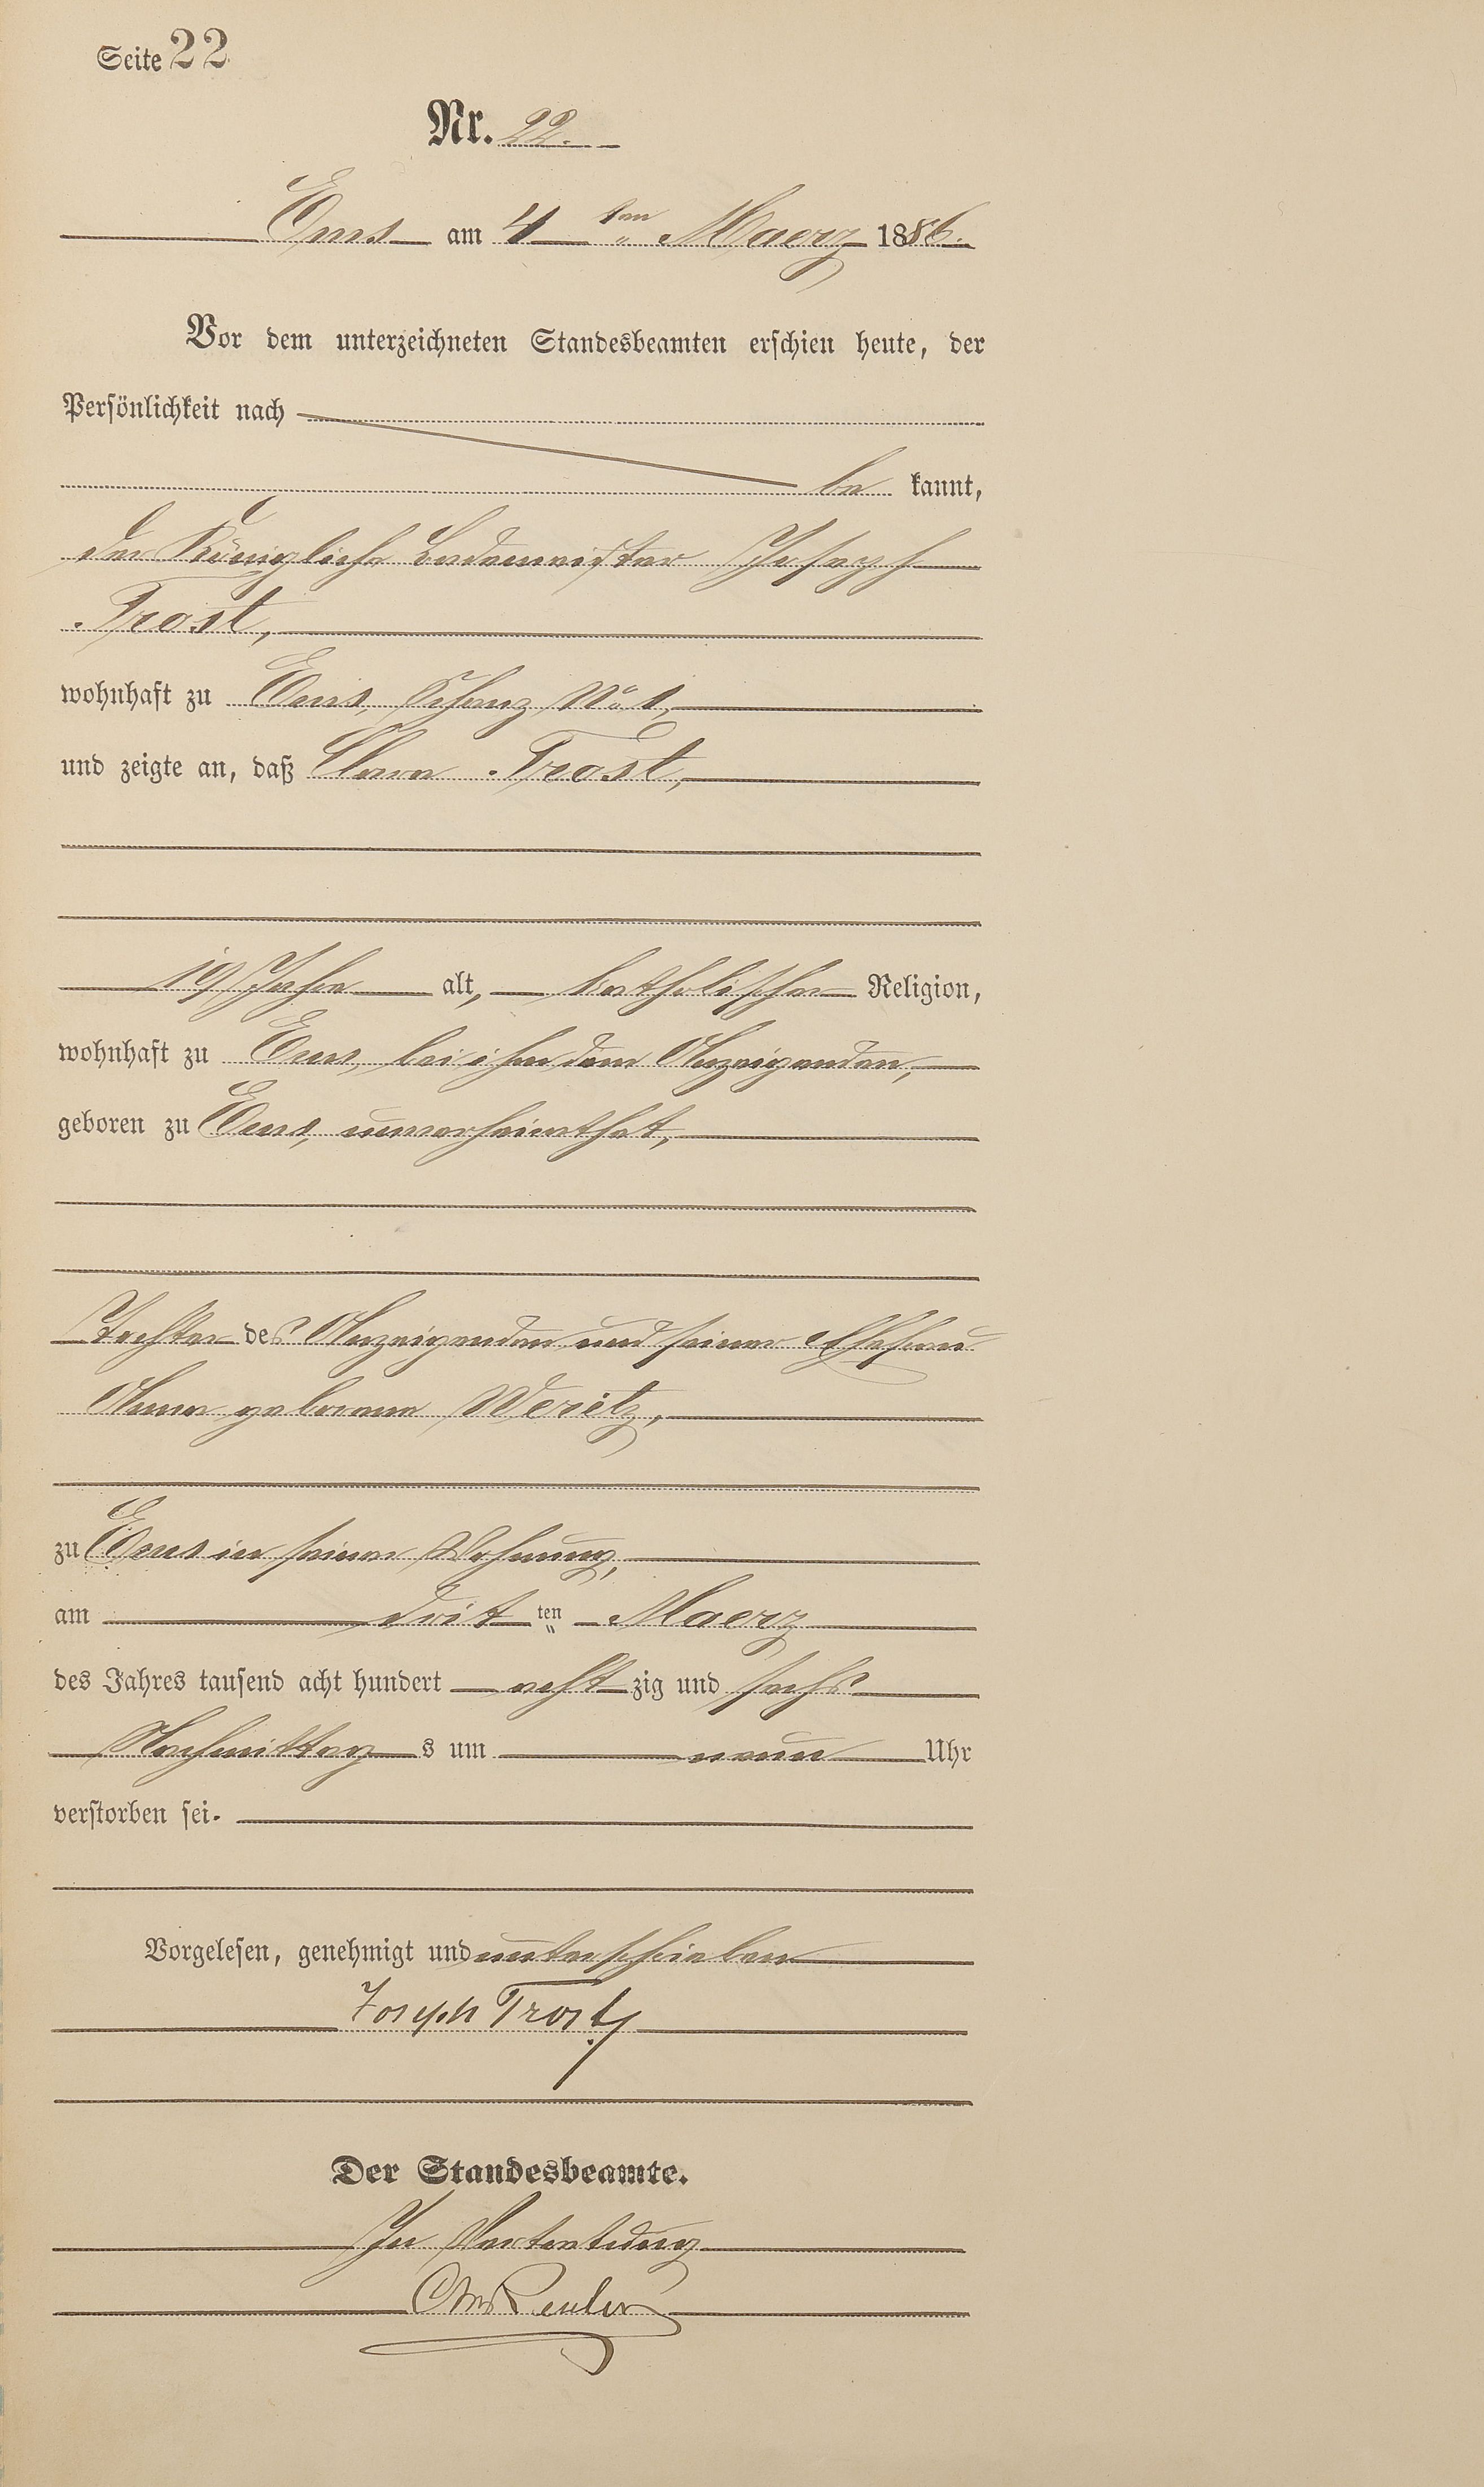 Seite 22
Nr. 22.
Ems am 4 ten Maerz 1886.
Vor dem unterzeichneten Standesbeamten erschien heute, der
Persönlichkeit nach
be kannt,
der Königliche Bademeister Joseph
Trost,
wohnhaft zu Ems, Schanz No 1,
und zeigte an, daß Clara Trost,
19 Jahre alt, katholischer Religion,
wohnhaft zu Ems, bei ihm dem Anzeigenden,
geboren zu Ems, unverheirathet,
Tochter des Anzeigenden und seiner Ehefrau
Anna geborene Weritz,
zu Ems in seiner Wohnung,
am drit ten Maerz
des Jahres tausend acht hundert acht zig und sechs
Nachmittag s um neun Uhr
verstorben sei.
Vorgelesen, genehmigt und unterschrieben
Joseph Trost
Der Standesbeamte.
In Vertretung